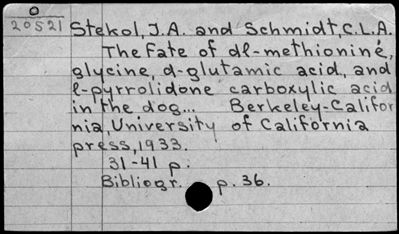 O
20521
Stekol, J.A. and Schmidt, C.L.A.
The fate of dl-methionine,
glycine, d-glutamic acid, and
l-pyrrolidone carboxylic acid
in the dog... Berkeley-Califor
nia, University of California
press, 1933.
31-41 p.
Bibliogr. p. 36.